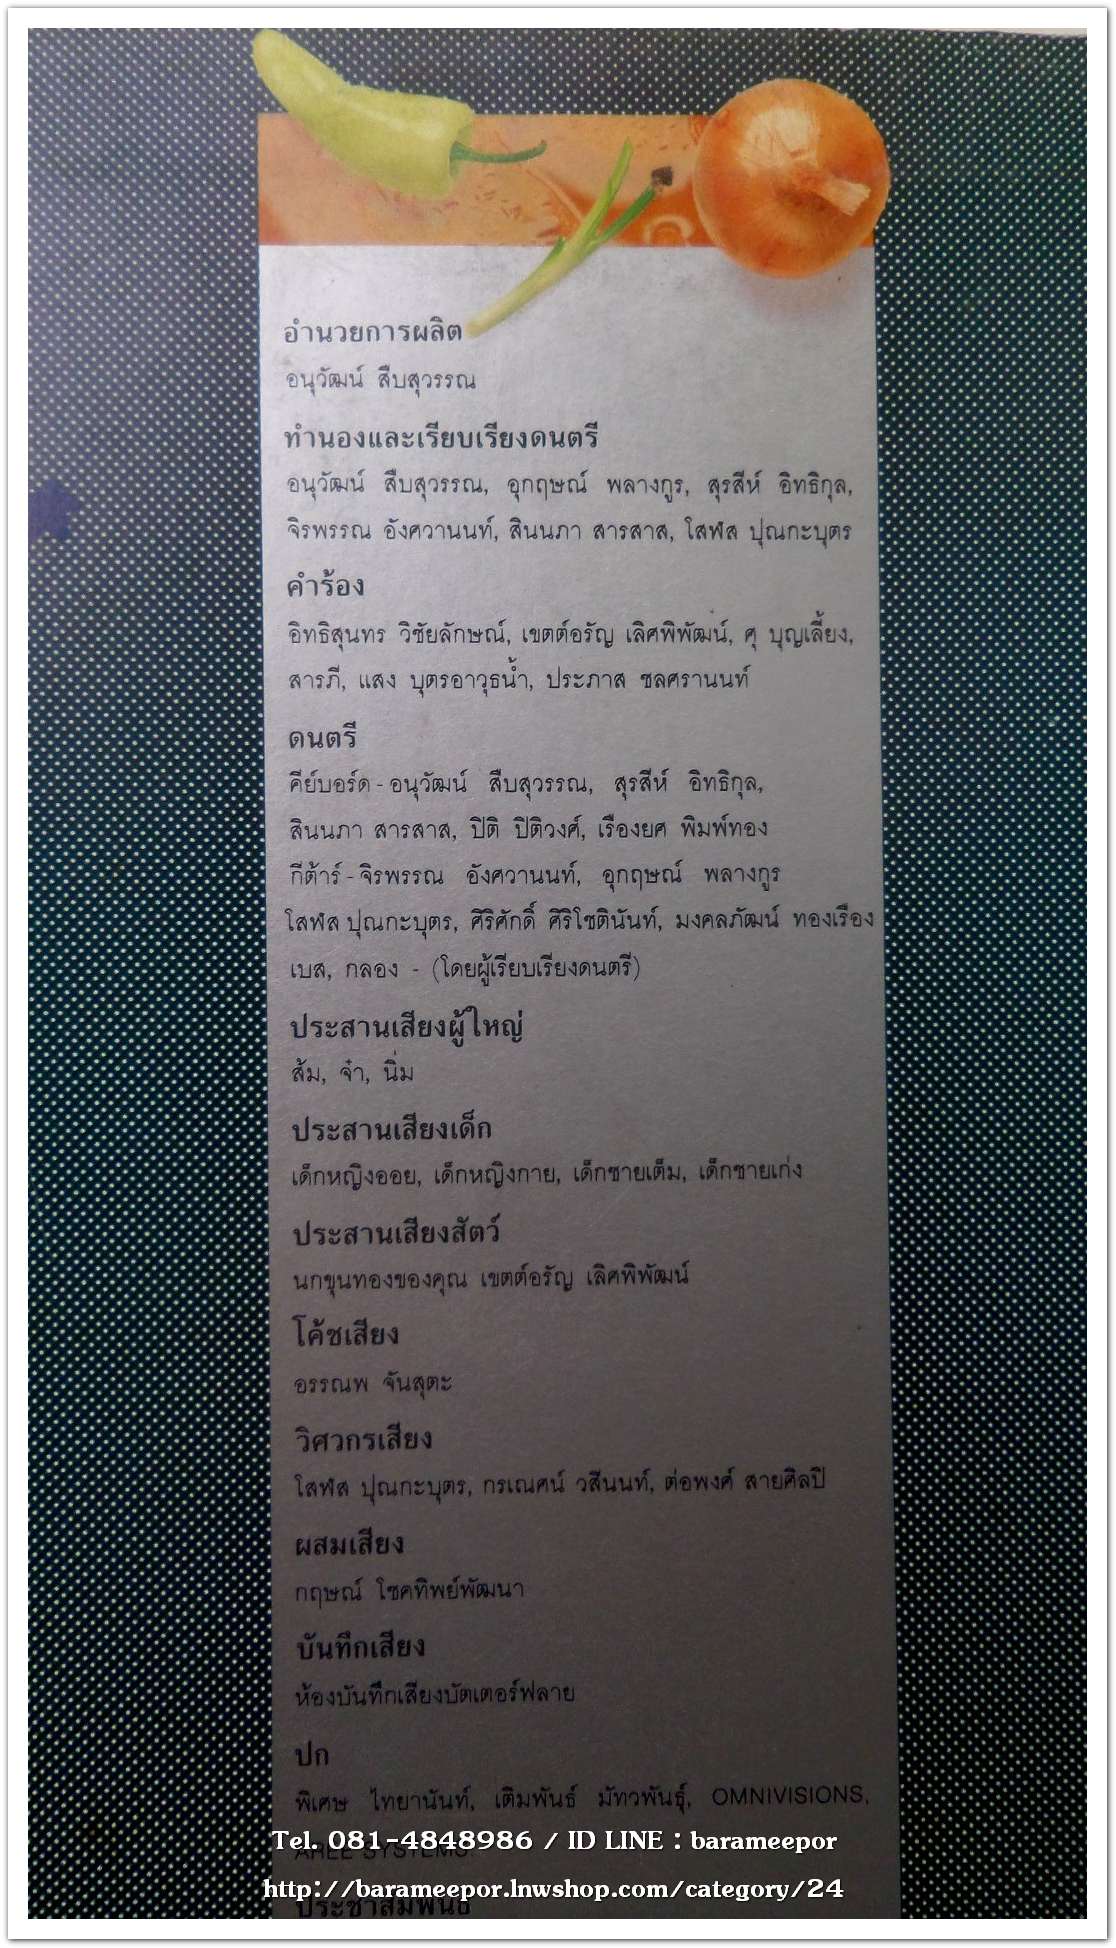 อำนวยการผลิต
อนุวัฒน์ สืบสุวรรณ
ทำนองและเรียบเรียงดนตรี
อนุวัฒน์ สืบสุวรรณ, อุกฤษณ์ พลางกูร, สุรสีห์ อิทธิกุล,
จิรพรรณ อังศวานนท์, สินนภา สารสาส, โสฬส ปุณกะบุตร
คำร้อง
อิทธิสุนทร วิชัยลักษณ์, เขตต์อรัญ เลิศพิพัฒน์, ศุ บุญเลี้ยง,
สารภี, แสง บุตรอาวุธน้ำ, ประภาส ชลศรานนท์
ดนตรี
คีย์บอร์ด - อนุวัฒน์ สืบสุวรรณ, สุรสีห์ อิทธิกุล,
สินนภา สารสาส, ปิติ ปิติวงศ์, เรืองยศ พิมพ์ทอง
กีต้าร์ - จิรพรรณ อังศวานนท์, อุกฤษณ์ พลางกูร
โสฬส ปุณกะบุตร, ศิริศักดิ์ ศิริโชตินันท์, มงคลภัฒน์ ทองเรือง
เบส, กลอง - (โดยผู้เรียบเรียงดนตรี)
ประสานเสียงผู้ใหญ่
ส้ม, จ๋า, นิ่ม
ประสานเสียงเด็ก
เด็กหญิงออย, เด็กหญิงกาย, เด็กชายเต็ม, เด็กชายเก่ง
ประสานเสียงสัตว์
นกขุนทองของคุณ เขตต์อรัญ เลิศพิพัฒน์
โค้ชเสียง
อรรณพ จันสุตะ
วิศวกรเสียง
โสฬส ปุณกะบุตร, กรเณศน์ วสีนนท์, ต่อพงศ์ สายศิลปิ
ผสมเสียง
กฤษณ์ โชคทิพย์พัฒนา
บันทึกเสียง
ห้องบันทึกเสียงบัตเตอร์ฟลาย
ปก
พิเศษ ไทยานันท์, เติมพันธ์ มัทวพันธุ์, OMNIVISIONS,
AREE SYSTEMS
Tel. 081-4848986 / ID LINE : barameepor
http://barameepor.lnwshop.com/category/24
ประชาสัมพันธ์